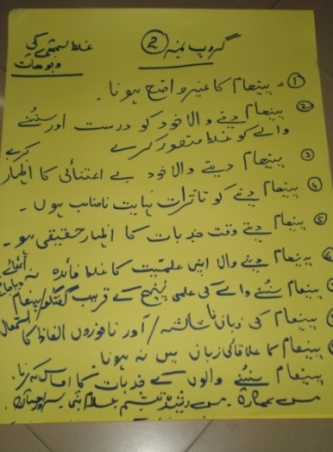 گروپ نمبر 2
غلط فہمی کی وجوہات
① پیغام کا غیر واضح ہونا۔
② پیغام دینے والا خود کو درست اور سننے
والے کو غلط متصور کرے
③ پیغام دینے والا خود بے اعتنائی کا اظہار کرے
④ پیغام دینے کو تاثرات نہایت نامناسب ہوں۔
⑤ پیغام دیتے وقت جذبات کا اظہار حقیقی ہو۔
⑥ پیغام دینے والا اپنی علمیت کا غلط فائدہ نہ اٹھائے
پیغام سننے والے کی علمی پہنچ کے قریب گفتگو/پیغام
پیغام کی زبان ناشائستہ/اور ناموزوں الفاظ کا استعمال
پیغام کا علاقائی زبان میں نہ ہونا
پیغام سننے والوں کے جذبات کا احساس نہ کرنا۔